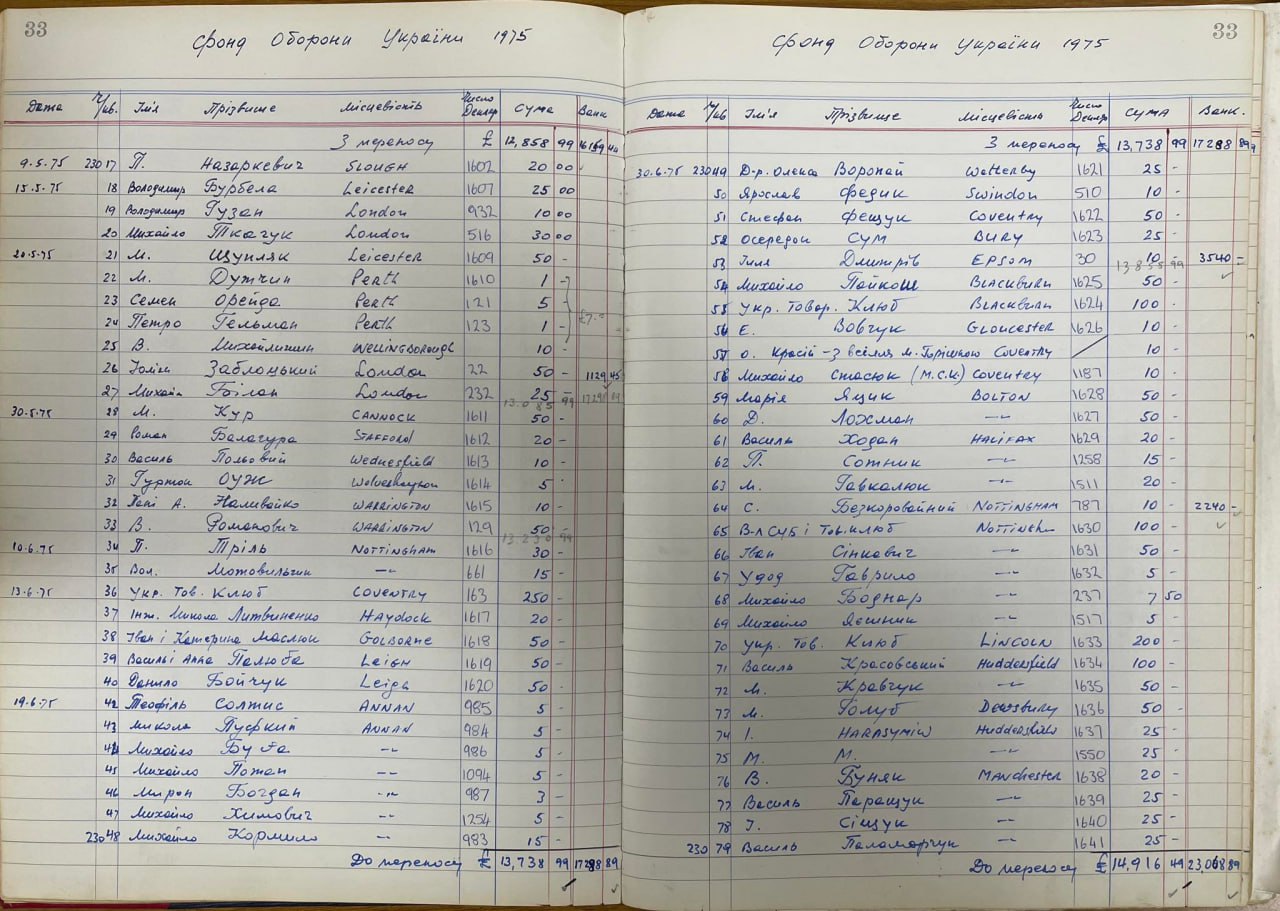 33
Фонд Оборони України 1975
Дата Ч/кв. Ім'я Прізвище Місцевість Число Деклар Сума Банк
З переносу £ 12,858 99
9.5.75 23017 П. Назаркевич Slough 1602 20 00
15.5.75 18 Володимир Бурбела Leicester 1607 25 00
19 Володимир Гузан London 932 10 00
20 Михайло Ткачук London 516 30 00
20.5.75 21 М. Щупляк Leicester 1609 50 -
22 М. Дутчин Perth 1610 1 -
23 Семен Орейда Perth 121 5 -
24 Петро Гельман Perth 123 1 -
25 В. Михайлишин Wellingborough 10 -
26 Юліян Заблоцький London 22 50 - 1129 45
27 Михайло Білан London 232 25 -
13.085 99
30.5.75 28 М. Кур Cannock 1611 50 -
29 Роман Балагура Stafford 1612 20 -
30 Василь Польовий Wednesfield 1613 10 -
31 Гурток ОУЖ Wolverhampton 1614 5 -
32 Пані А. Наливайко Warrington 1615 10 -
33 В. Романович Warrington 129 50 -
13.230 99
10.6.75 34 П. Тріль Nottingham 1616 30 -
35 Вол. Мотовильчин -"- 661 15 -
13.6.75 36 Укр. Тов. Клюб Coventry 163 250 -
37 Інж. Микола Литвиненко Haydock 1617 20 -
38 Іван і Катерина Маслюк Golborne 1618 50 -
39 Василь і Анна Палюба Leigh 1619 50 -
40 Данило Бойчук Leigh 1620 50 -
19.6.75 42 Теофіль Солтис Annan 985 5 -
43 Микола Пуфкий Annan 984 5 -
44 Михайло Буґа -"- 986 5 -
45 Михайло Потап -"- 1094 5 -
46 Мирон Богдан -"- 987 3 -
47 Михайло Химович -"- 1254 5 -
23048 Михайло Кормило -"- 983 15 -
До переносу £ 13,738 99 17288 89
33
Фонд Оборони України 1975
Дата Ч/кв Ім'я Прізвище Місцевість Число Деклар Сума Банк.
З переносу £ 13,738 99 17288 89
30.6.75 23049 Д-р. Олекса Воропай Wetherby 1621 25 -
50 Ярослав Федик Swindon 510 10 -
51 Стефан Фещук Coventry 1622 50 -
52 Осередок СУМ Bury 1623 25 -
53 Ілля Дмитрів Epsom 30 10 - 3540 =
13.855 99
54 Михайло Пайкош Blackburn 1625 50 -
55 Укр. Товар. Клюб Blackburn 1624 100 -
56 Е. Вовчук Gloucester 1626 10 -
57 о. Красій - З весілля М. Горішною Coventry 10 -
58 Михайло Стасюк (М.С.К) Coventry 1187 10 -
59 Марія Ящик Bolton 1628 50 -
60 Д. Лохман -"- 1627 50 -
61 Василь Ходан Halifax 1629 20 -
62 П. Сотник -"- 1258 15 -
63 М. Гавкалюк -"- 1511 20 -
64 С. Безкоровайний Nottingham 787 10 - 2240 -
65 В-л СУБ і Тов. Клюб Nottingham 1630 100 -
66 Іван Сінкович -"- 1631 50 -
67 Удод Гаврило -"- 1632 5 -
68 Михайло Боднар -"- 237 7 50
69 Михайло Ясешник -"- 1517 5 -
70 Укр. Тов. Клюб Lincoln 1633 200 -
71 Василь Красовський Huddersfield 1634 100 -
72 М. Кравчук -"- 1635 50 -
73 М. Голуб Dewsbury 1636 50 -
74 I. Harasymiw Huddersfield 1637 25 -
75 М. М. -"- 1550 25 -
76 В. Буняк Manchester 1638 20 -
77 Василь Паращук -"- 1639 25 -
78 І. Сіщук -"- 1640 25 -
230 79 Василь Паламарчук -"- 1641 25 -
До переносу £ 14,916 49 23,068 89